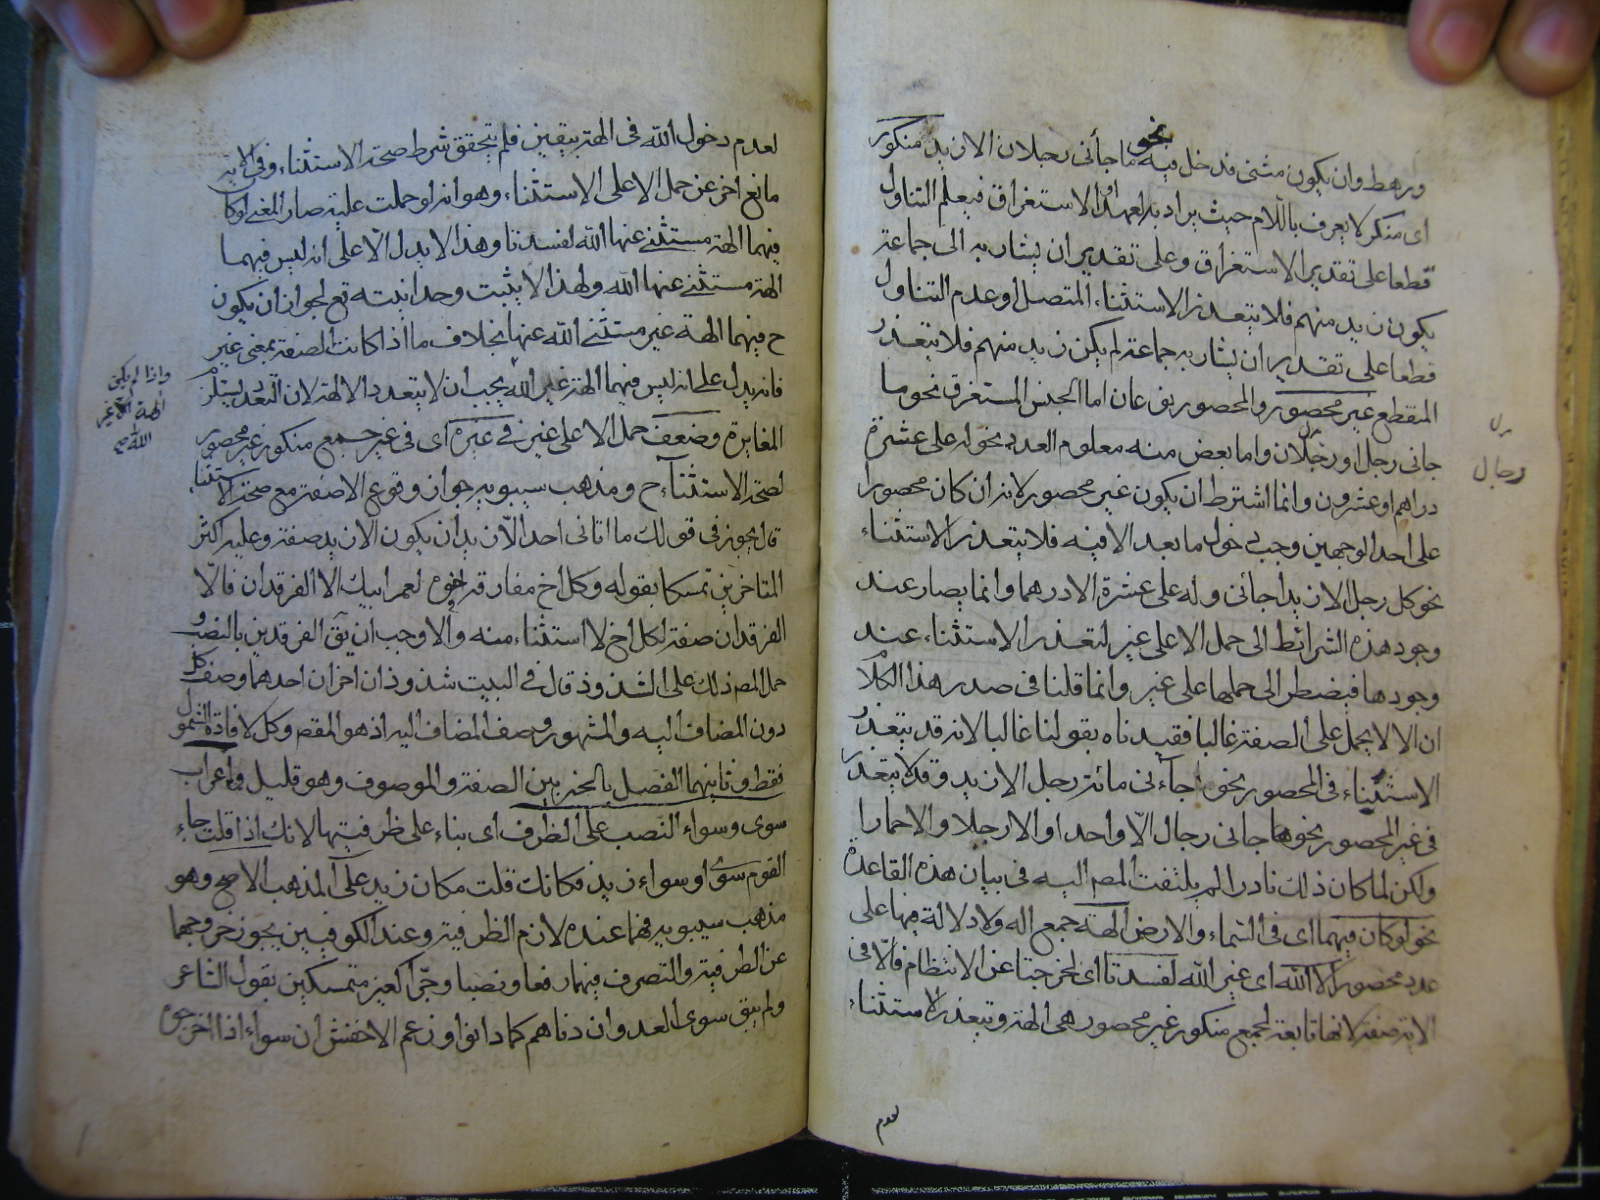 ورهط وان يكون مثنى فدخل فيه نحو ما جاءنى رجلان الا زيد منكور
اى منكر لا يعرف باللام حيث يراد به العهد او الاستغراق فيعلم التناول
قطعا على تقدير الاستغراق وعلى تقدير ان يشار به الى جماعة
يكون زيد منهم فلا يتعذر الاستثناء المتصل او عدم التناول
قطعا على تقدير ان يشار به جماعة لم يكن زيد منهم فلا يتعذر
المنقطع غير محصور والمحصور نوعان اما الجنس المستغرق نحو ما
جانى رجل او رجلان واما بعض منه معلوم العدد نحو له على عشرة
دراهم او عشرون وانما اشترط ان يكون غير محصور لانه ان كان محصورا
على احد الوجهين وجب دخول ما بعد الا فيه فلا يتعذر الاستثناء
نحو كل رجل الا زيدا جائنى وله على عشرة الا درهما وانما يصار عند
وجود هذه الشرائط الى حمل الا على غير لتعذر الاستثناء عند
وجودها فيضطر الى حملها على غير وانما قلنا فى صدر هذا الكلام
ان الا لا يحمل على الصفة غالبا فقيدناه بقولنا غالبا لانه قد يتعذر
الاستثناء فى المحصور نحو جاءنى مائة رجل الا زيد وقد لا يتعذر
فى غير المحصور نحو ما جانى رجال الا واحدا او الا رجلا والا حمارا
ولكن لما كان ذلك نادرا لم يلتفت المصـ اليه فى بيان هذه القاعدة
نحو لو كان فيهما اى فى السماء والارض الهة جمع اله ولا دلالة فيها على
عدد محصور الا الله اى غير الله لفسدتا اى لخرجتا عن الانتظام فالا فى
الاية صفة لانها تابعة لجمع منكور غير محصور هى الهة ويتعذر الاستثناء
لعدم
رجال
لعدم دخول الله فى الهة بيقين فلم يتحقق شرط صحة الاستثناء وفى الاية
مانع اخر عن حمل الا على الاستثناء وهو انه لو حملت عليه صار المعنى لو كان
فيهما الهة مستثنى عنها الله لفسدتا وهذا لا يدل الا على انه ليس فيهما
الهة مستثنى عنها الله ولهذا لا يثبت وحدانيته تع لجواز ان يكون
ح فيهما الهة غير مستثنى الله عنها بخلاف ما اذا كانت الصفة بمعنى غير
فانه يدل على انه ليس فيهما الهة غير الله يجب ان لا يتعدد الالهة لان التعدد يستلزم
المغايرة وضعف حمل الا على غير فى غيره اى فى غير جمع منكور غير محصور
لصحة الاستثناء ح ومذهب سيبويه جواز وقوع الا صفة مع صحة الاستثناء
قال يجوز فى قولك ما اتانى احد الا زيد ان يكون الا زيد صفة وعليه اكثر
المتاخرين تمسكا بقوله وكل اخ مفارقه اخوه لعمر ابيك الا الفرقدان فالا
الفرقدان صفة لكل اخ لا استثناء منه والا وجب ان يق الفرقدين بالنصب و
حمل المصـ ذلك على الشذوذ قال فى البيت شذوذان اخران احدهما وصف كل
دون المضاف اليه والمشهور وصف المضاف اليه اذ هو المقصـ وكل لافادة الشمول
فقط وثانيهما الفصل بالخبر بين الصفة والموصوف وهو قليل واعراب
سوى وسواء النصب على الظرف اى بناء على ظرفيتهما لانك اذا قلت جاء
القوم سوى او سواء زيد فكانك قلت مكان زيد على المذهب الاصح وهو
مذهب سيبويه فهما عنده لازم الظرفية وعند الكوفيين يجوز خروجهما
عن الظرفية والتصرف فيهما رفعا ونصبا وجرا كغير متمسكين بقول الشاعر
ولم يبق سوى العدوان دناهم كما دانوا وزعم الاخفش ان سواء اذا اخرجوه
واذا لم يكن
الهة غير
الله صح